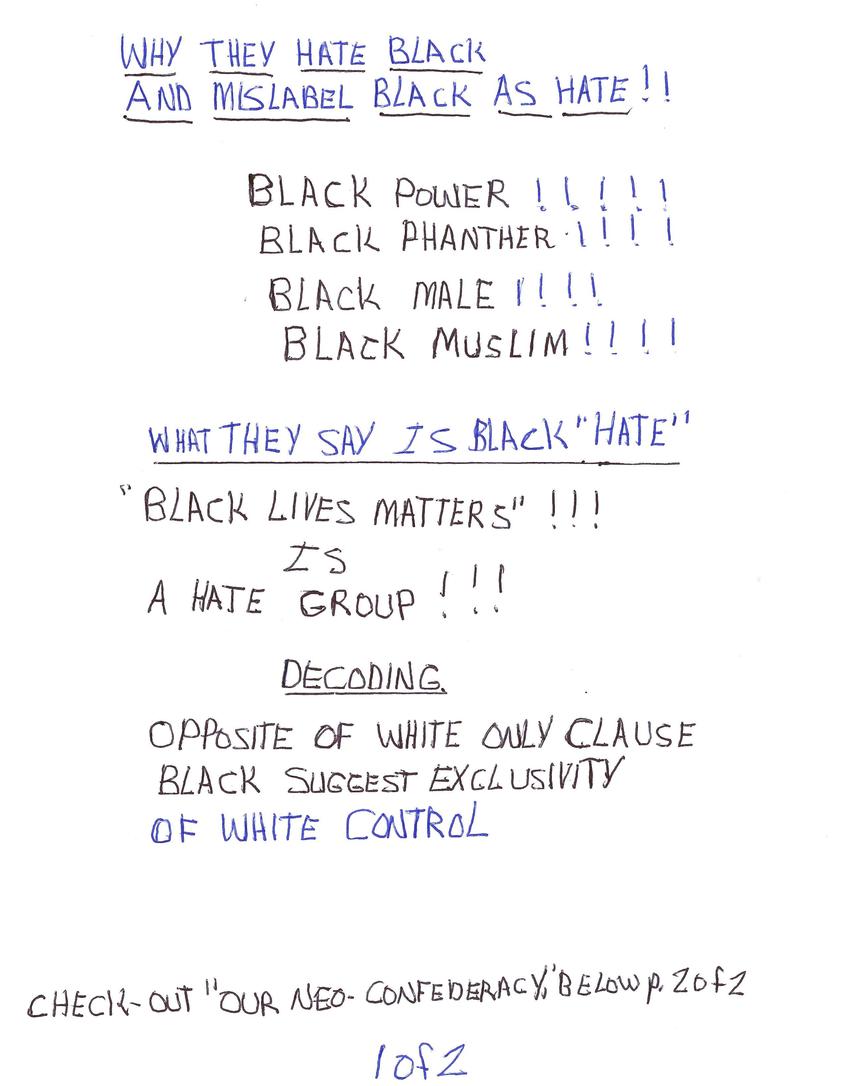 WHY THEY HATE BLACK
AND MISLABEL BLACK AS HATE!!
BLACK POWER !!!!!
BLACK PHANTHER !!!!
BLACK MALE !!!!
BLACK MUSLIM !!!!
WHAT THEY SAY IS BLACK "HATE"
"BLACK LIVES MATTERS" !!!
IS
A HATE GROUP !!!
DECODING.
OPPOSITE OF WHITE ONLY CLAUSE
BLACK SUGGEST EXCLUSIVITY
OF WHITE CONTROL
CHECK-OUT "OUR NEO-CONFEDERACY," BELOW p. 2 of 2
1 of 2